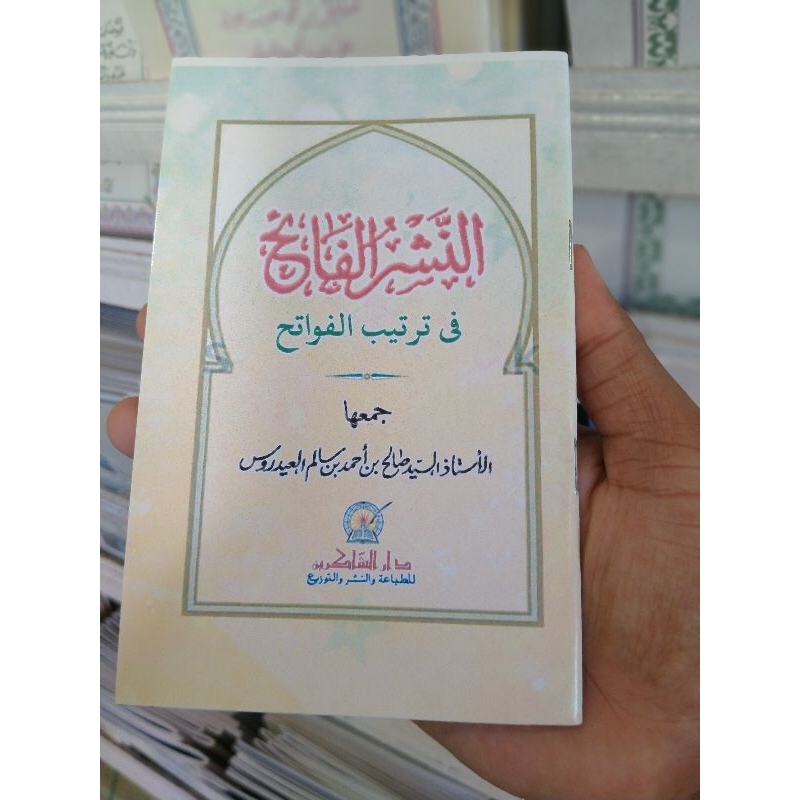 النَّشْرُ الفَائِحُ
في ترتيب الفواتح
جمعها
الأستاذ السيد صالح بن أحمد بن سالم العيدروس
دار الشاكرين
للطباعة والنشر والتوزيع